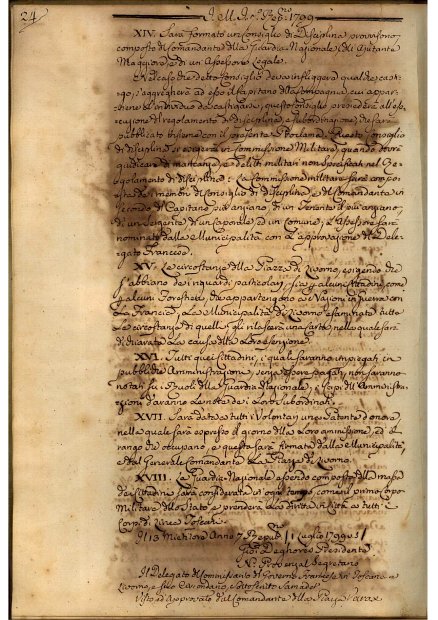 24
XIV. Sarà Formato un Consiglio di Disciplina provvisorio,
composto del Comandante della Guardia Nazionale, dell'Aiutante
Maggiore, e di un Assessorio Legale.
Nel caso che detto Consiglio deva infliggere qualche casti-
go, s'aggregherà ad esso il Capitano della Compagnia, cui appar-
tiene l'Individuo da castigarsi, questo Consiglio presiederà all'ese-
cuzione del regolamento di disciplina, e subordinazione, che sarà
pubblicato insieme con il presente Proclama. Questo Consiglio
di disciplina si erigerà in Commissione Militare, quando dovrà
giudicare di mancanze, e delitti militari non specificati nel Re-
golamento di disciplina: La Commissione militare sarà com-
posta dei membri del Consiglio di disciplina, e del Comandante in
secondo, del Capitano più anziano, di un Tenente il più anziano,
di un Sergente, di un Caporale, ed un Comune; l'Assessore sarà
nominato dalla Municipalità con l'approvazione del Dele-
gato Francese.
XV. Le circostanze della Piazza di Livorno, esigendo che
s'abbiano dei riguardi particolari, sia per alcuni Cittadini, come
per alcuni Forestieri, che appartengono a Nazioni in guerra con
la Francia, la Municipalità di Livorno esaminate tutte
le circostanze di quelli, gli rilascerà una Carta nella quale sarà
dichiarata la causa della loro esenzione.
XVI. Tutti quei Cittadini, i quali saranno impiegati in
pubbliche Amministrazioni, senza essere pagati, non saranno
notati su i Ruoli della Guardia Nazionale, i Capi dell'Amministra-
zioni daranno le note dei loro Subordinati.
XVII. Sarà data a tutti i Volontari una Patente d'onore,
nella quale sarà espresso il giorno della loro ammissione, ed il
rango che occupano, e questa sarà firmata dalla Municipalità,
e dal Generale Comandante la Piazza di Livorno.
XVIII. La Guardia Nazionale essendo composta dalla massa
dei Cittadini sarà considerata in ogni tempo, come il primo Corpo
Militare dello Stato, e prenderà la dritta in Città su tutti i
Corpi di Linea Toscani.
Il 13 Messidoro Anno 7 Repub. / 1 Luglio 1799
Presidente
Provenzal Segretario
Il Delegato del Commissario del Governo Francese in Toscana a
Livorno, e suo Circondario,
Visto, ed Approvato dal Comandante della Piazza